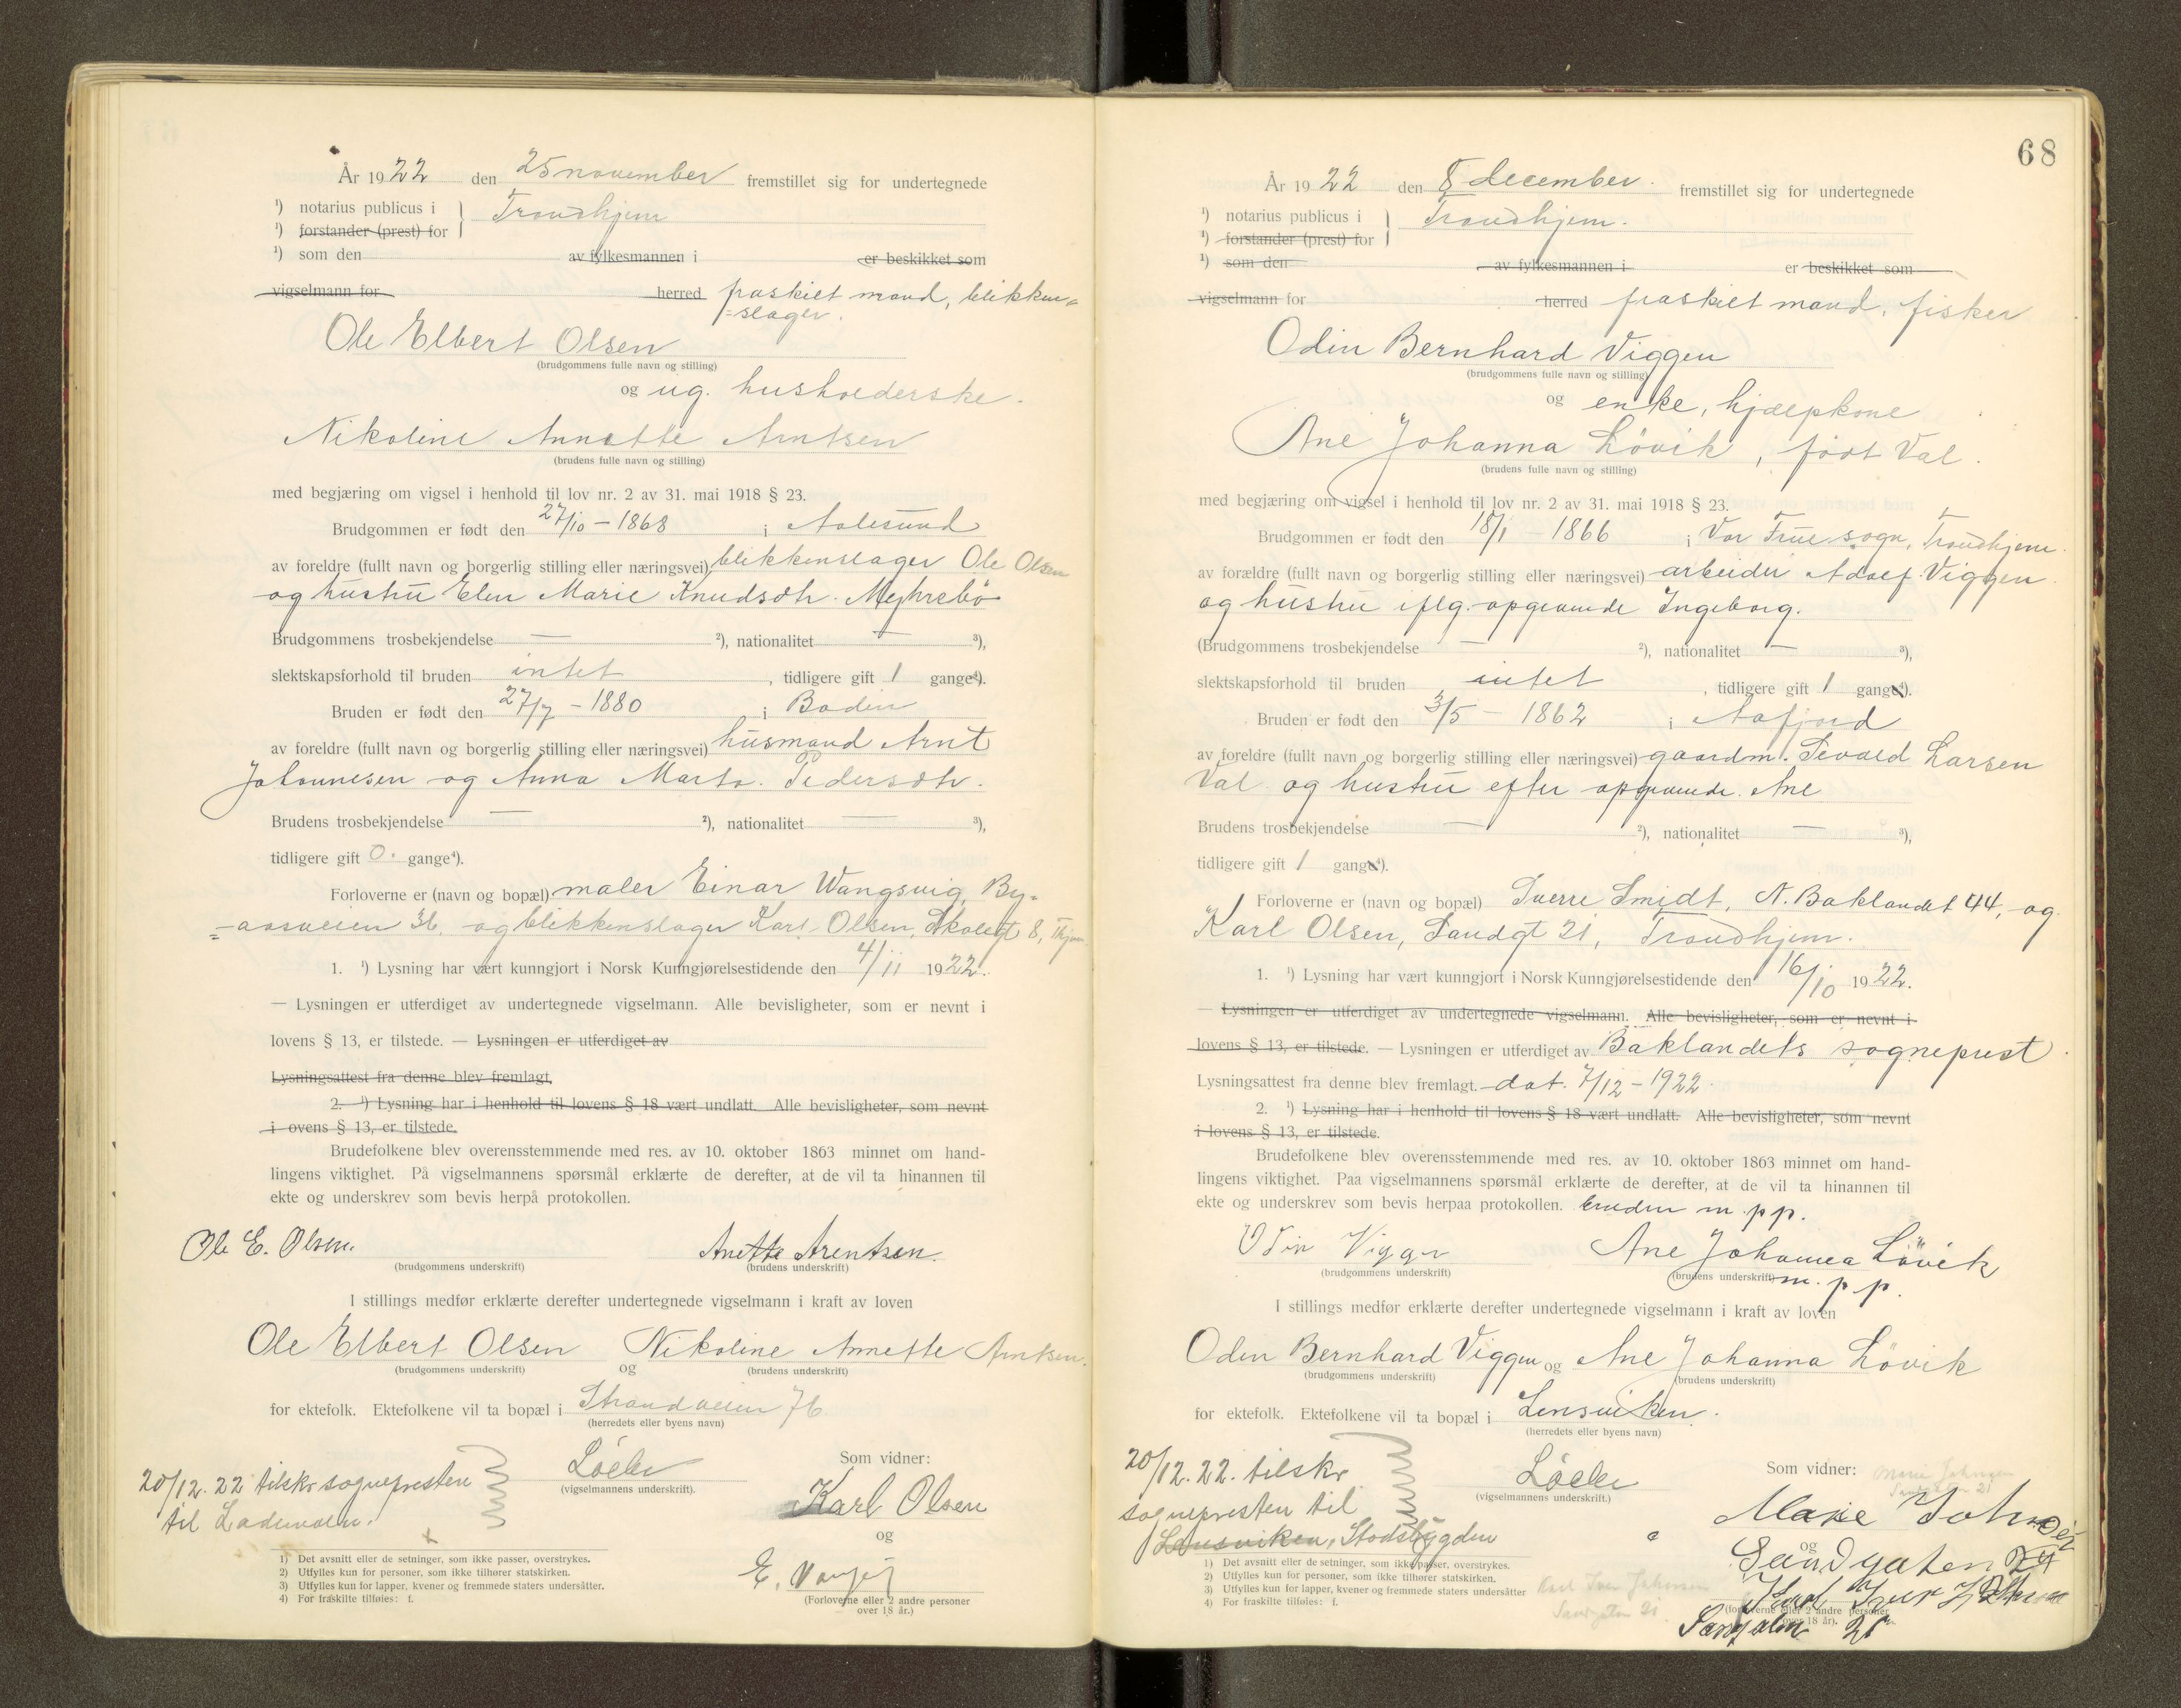 År 1922 den 25 november fremstillet sig for undertegnede
¹) notarius publicus i Trondhjem
¹) forstander (prest) for
¹) som den av fylkesmannen i er beskikket som
vigselmann for herred fraskilt mand, blikken=
=slager.
Ole Elbert Olsen
(brudgommens fulle navn og stilling)
og ug. husholderske.
Nikoline Annette Arntsen
(brudens fulle navn og stilling)
med begjæring om vigsel i henhold til lov nr. 2 av 31. mai 1918 § 23.
Brudgommen er født den 27/10 - 1868 i Aalesund
av foreldre (fullt navn og borgerlig stilling eller næringsvei) blikkenslager Ole Olsen
og hustru Elen Marie Knudsdtr.
Brudgommens trosbekjendelse — ²), nationalitet — ³),
slektskapsforhold til bruden intet, tidligere gift 1 gange⁴).
Bruden er født den 27/7 - 1880 i Bodin
av foreldre (fullt navn og borgerlig stilling eller næringsvei) husmand Arnt
Johannesen og Anna Marta Pedersdtr.
Brudens trosbekjendelse — ²), nationalitet — ³),
tidligere gift 0. gange⁴).
Forloverne er (navn og bopæl) maler Einar Wangsvig, By=
=aasveien 36, og blikkenslager Karl Olsen, 8, Thjem.
1. ¹) Lysning har vært kunngjort i Norsk Kunngjørelsestidende den 4/11 1922.
— Lysningen er utferdiget av undertegnede vigselmann. Alle bevisligheter, som er nevnt i
lovens § 13, er tilstede. — Lysningen er utferdiget av
Lysningsattest fra denne blev fremlagt.
2. ¹) Lysning har i henhold til lovens § 18 vært undlatt. Alle bevisligheter, som nevnt
i ovens § 13, er tilstede.
Brudefolkene blev overensstemmende med res. av 10. oktober 1863 minnet om hand-
lingens viktighet. På vigselmannens spørsmål erklærte de derefter, at de vil ta hinannen til
ekte og underskrev som bevis herpå protokollen.
Ole E. Olsen. Anette Arentsen.
(brudgommens underskrift) (brudens underskrift)
I stillings medfør erklærte derefter undertegnede vigselmann i kraft av loven
Ole Elbert Olsen og Nikoline Annette Arntsen.
(brudgommens underskrift) (brudens underskrift)
for ektefolk. Ektefolkene vil ta bopæl i Strandveien 76
(herredets eller byens navn)
20/12.22 tilskr. sognepresten
til Lademoen.
(vigselmannens underskrift).
Som vidner:
Karl Olsen
og
E.
(Forloverne eller 2 andre personer
over 18 år.)
1) Det avsnitt eller de setninger, som ikke passer, overstrykes.
2) Utfylles kun for personer, som ikke tilhører statskirken.
3) Utfylles kun for lapper, kvener og fremmede staters undersåtter.
4) For fraskilte tilføies: f.
68
År 1922 den 8 december. fremstillet sig for undertegnede
¹) notarius publicus i Trondhjem.
¹) forstander (prest) for
¹) som den av fylkesmannen i er beskikket som
vigselmann for herred fraskilt mand, fisker
Odin Bernhard Viggen
(brudgommens fulle navn og stilling)
og enke, hjælpkone
Ane Johanna Lövik, født Val.
(brudens fulle navn og stilling)
med begjæring om vigsel i henhold til lov nr. 2 av 31. mai 1918 § 23.
Brudgommen er født den 18/1 - 1866 i Vor Frue sogn, Trondhjem.
av forældre (fullt navn og borgerlig stilling eller næringsvei) arbeider Adolf Viggen
og hustru iflg. opgivende Ingeborg.
(Brudgommens trosbekjendelse — ²), nationalitet — ³),
slektskapsforhold til bruden intet, tidligere gift 1 gang⁴).
Bruden er født den 3/5 - 1862 i Aafjord
av foreldre (fullt navn og borgerlig stilling eller næringsvei) gaardm. Sevald Larsen
Val og hustru efter opgivende Ane
Brudens trosbekjendelse — ²), nationalitet — ³),
tidligere gift 1 gang⁴).
Forloverne er (navn og bopæl) Sverre Smidt, N. Baklandet 44, og
Karl Olsen, Sandgt 21, Trondhjem.
1. ¹) Lysning har vært kunngjort i Norsk Kunngjørelsestidende den 16/10 1922.
— Lysningen er utferdiget av undertegnede vigselmann. Alle bevisligheter, som er nevnt i
lovens § 13, er tilstede. — Lysningen er utferdiget av Baklandets sogneprest
Lysningsattest fra denne blev fremlagt. dat. 7/12 - 1922.
2. ¹) Lysning har i henhold til lovens § 18 vært undlatt. Alle bevisligheter, som nevnt
i lovens § 13, er tilstede.
Brudefolkene blev overensstemmende med res. av 10. oktober 1863 minnet om hand-
lingens viktighet. Paa vigselmannens spørsmål erklærte de derefter, at de vil ta hinannen til
ekte og underskrev som bevis herpaa protokollen. bruden m. p p.
Odin Viggen Ane Johanna Lövik
(brudgommens underskrift) (brudens underskrift) m. p p.
I stillings medfør erklærte derefter undertegnede vigselmann i kraft av loven
Odin Bernhard Viggen og Ane Johanna Lövik
(brudgommens underskrift) (brudens underskrift)
for ektefolk. Ektefolkene vil ta bopæl i Lensviken.
(herredets eller byens navn)
20/12.22. tilskr.
sognepresten til
Lensviken, Stadsbygden
(vigselmannens underskrift.)
Som vidner: Marie Johnsen
Sandgaten 21
Marie Johnsen
og
Sandgaten 21
Karl Iver Johnsen
(forloverne eller 2 andre personer
over 18 år).
Sandgaten 21
1) Det avsnitt eller de setninger, som ikke passer, overstrykes.
2) Utfylles kun for personer, som ikke tilhører statskirken.
3) Utfylles kun for lapper, kvener og fremmede staters undersåtter
4) For fraskilte tilføies: f.
Karl Iver Johnsen
Sandgaten 21.